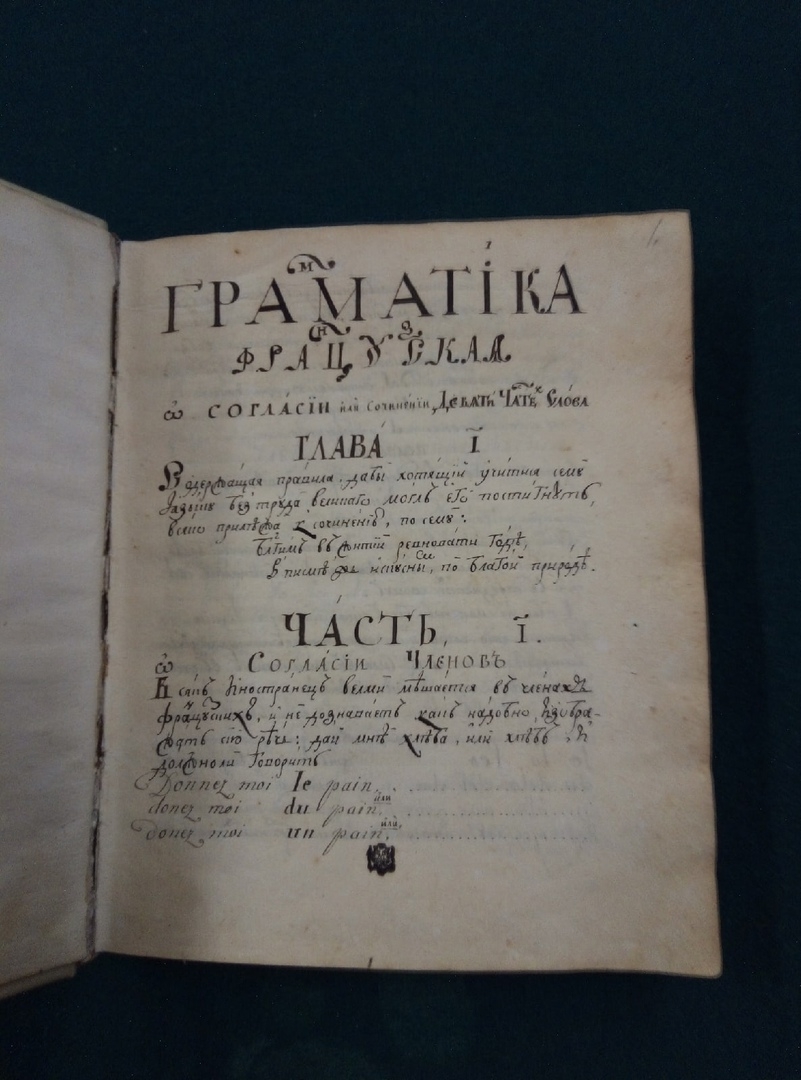 1.
ГРАМАТІКА
ФРАЦУЗСКАЯ
ѡ СОГЛАСІИ или Сочинении Девяти Чатеи Слова
ГЛАВА І
Водержащая правила, дабы хотящіи учитися сему
Языку без труда великаго моглъ его постигнуть,
к сочиненію, по сему:
ревновати
В писмѣ искусны, по благой природѣ.
ЧАСТЬ, І.
ѡ СОГЛАСІИ ЧЛЕНОВЪ
Всякъ Иностранецъ велми мѣшается въ членахъ
французскихъ, и не дознаваетъ какъ надобно изобра-
жать сію рѣчь: дай мнѣ хлѣба, или хлѣбъ, И
должноли говорить
Donnez moi le pain,
donez moi du pain, или
donez moi un pain, или,